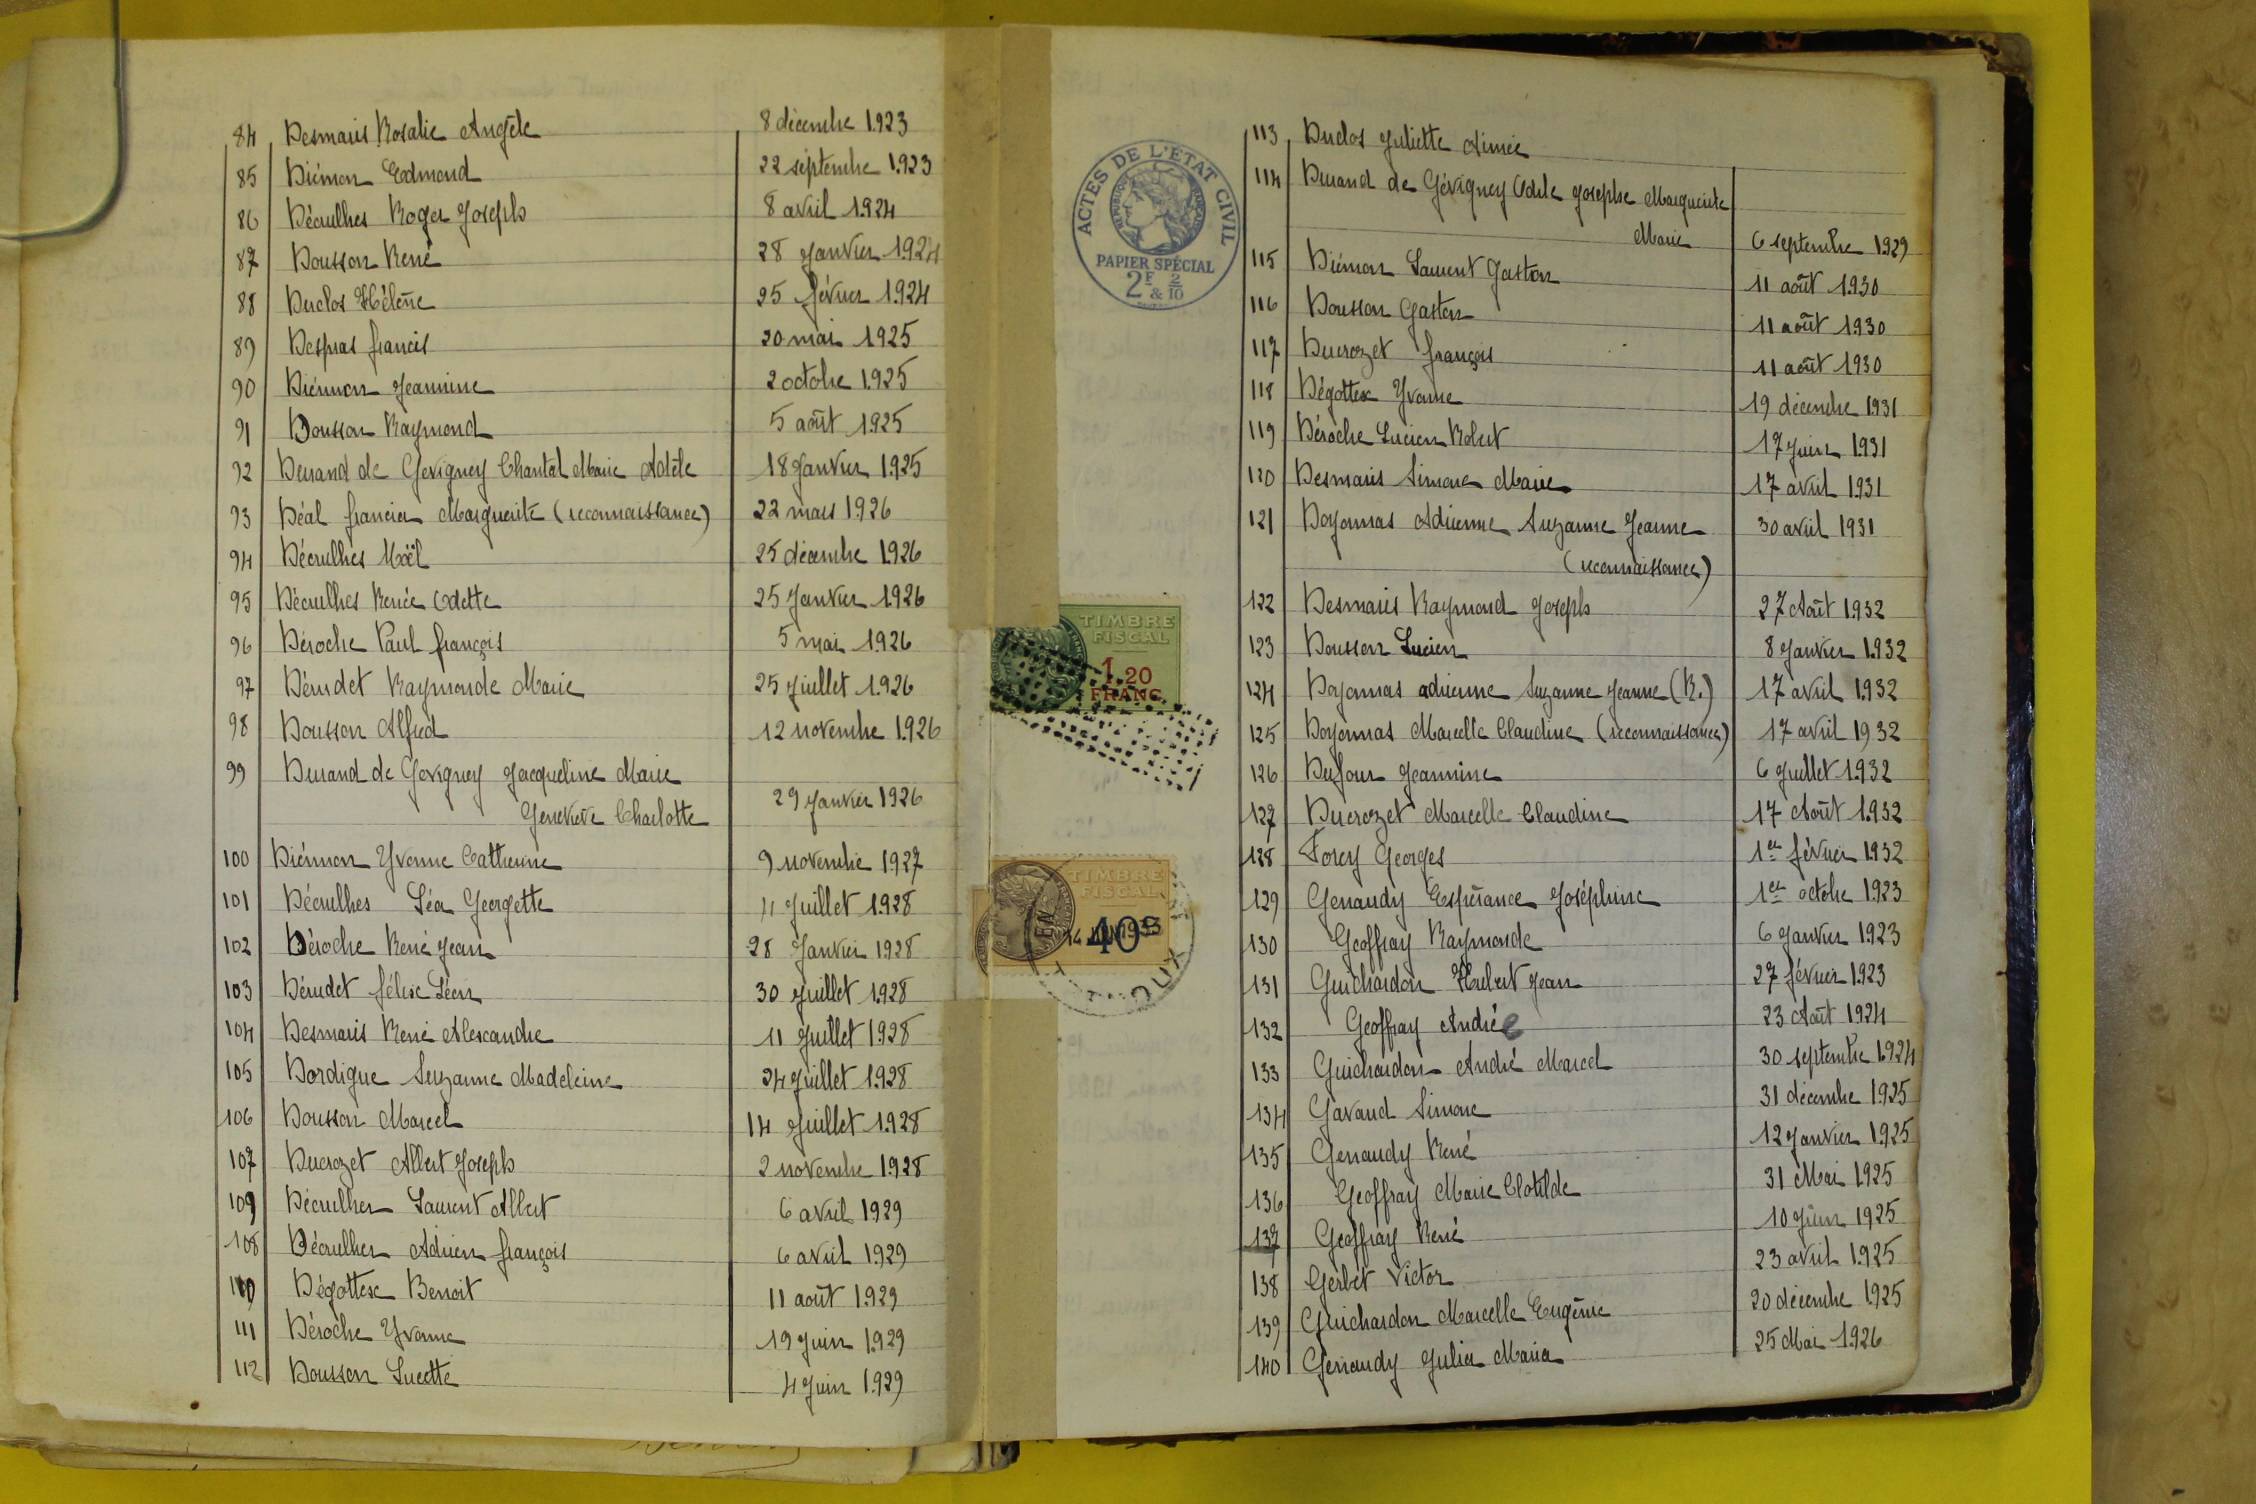 84 Desmaris Rosalie Angèle 8 décembre 1923
85 Diémon Edmond 22 septembre 1923
86 Décrulhes Roger Joseph 8 avril 1924
87 Dousson René 28 Janvier 1924
88 Duclos Hélène 25 février 1924
89 Despras francis 20 mai 1925
90 Diémon Jeannine 2 octobre 1925
91 Dousson Raymond 5 août 1925
92 Durand de Gevigney Chantal Marie Adèle 18 Janvier 1925
93 Déal francia Marguerite (reconnaissance) 22 mars 1926
94 Décrulhes Noël 25 décembre 1926
95 Décrulhes Renée Odette 25 Janvier 1926
96 Déroche Paul françois 5 mai 1926
97 Dérudet Raymonde Marie 25 Juillet 1926
98 Dousson Alfred 12 novembre 1926
99 Durand de Gevigney Jacqueline Marie
Geneviève Charlotte 29 Janvier 1926
100 Diémon Yvonne Catherine 9 novembre 1927
101 Décrulhes Léa Georgette 11 Juillet 1928
102 Déroche René Jean 28 Janvier 1928
103 Dérudet félix Léon 30 Juillet 1928
104 Desmaris René Alexandre 11 Juillet 1928
105 Dordigue Suzanne Madeleine 24 Juillet 1928
106 Dousson Marcel 14 Juillet 1928
107 Ducrozet Albert Joseph 2 novembre 1928
109 Décrulhes Laurent Albert 6 avril 1929
108 Décrulhes Adrien françois 6 avril 1929
110 Dégottex Benoit 11 août 1929
111 Déroche Yvonne 19 Juin 1929
112 Dousson Lucette 4 Juin 1929
ACTES DE L'ÉTAT CIVIL
RÉPUBLIQUE FRANÇAISE
PAPIER SPÉCIAL
2F & 2/10
TIMBRE
FISCAL
1,20
FRANC
TIMBRE
FISCAL
40
113 Duclos Juliette Aimée
114 Durand de Gévigney Odile Josèphe Marguerite
Marie 6 septembre 1929
115 Diémon Laurent Gaston 11 août 1930
116 Dousson Gaston 11 août 1930
117 Ducrozet françois 11 août 1930
118 Dégottex Yvonne 19 décembre 1931
119 Déroche Lucien Robert 17 Juin 1931
120 Desmaris Simone Marie 17 avril 1931
121 Doyonnas Adrienne Suzanne Jeanne 30 avril 1931
(reconnaissance)
122 Desmaris Raymond Joseph 27 Août 1932
123 Dousson Lucien 8 Janvier 1932
124 Doyonnas adrienne Suzanne Jeanne (R.) 17 avril 1932
125 Doyonnas Marcelle Claudine (reconnaissance) 17 avril 1932
126 Dufour Jeannine 6 Juillet 1932
127 Ducrozet Marcelle Claudine 17 Août 1932
128 Forey Georges 1er février 1932
129 Genaudy Espérance Joséphine 1er octobre 1923
130 Geoffray Raymonde 6 Janvier 1923
131 Guichardon Hubert Jean 27 février 1923
132 Geoffray Andrée 23 Août 1924
133 Guichardon André Marcel 30 septembre 1924
134 Gavaud Simone 31 décembre 1925
135 Genaudy René 12 Janvier 1925
136 Geoffray Marie Clotilde 31 Mai 1925
137 Geoffray René 10 Juin 1925
138 Gerbet Victor 23 avril 1925
139 Guichardon Marcelle Eugénie 20 décembre 1925
140 Genaudy Julia Maria 25 Mai 1926